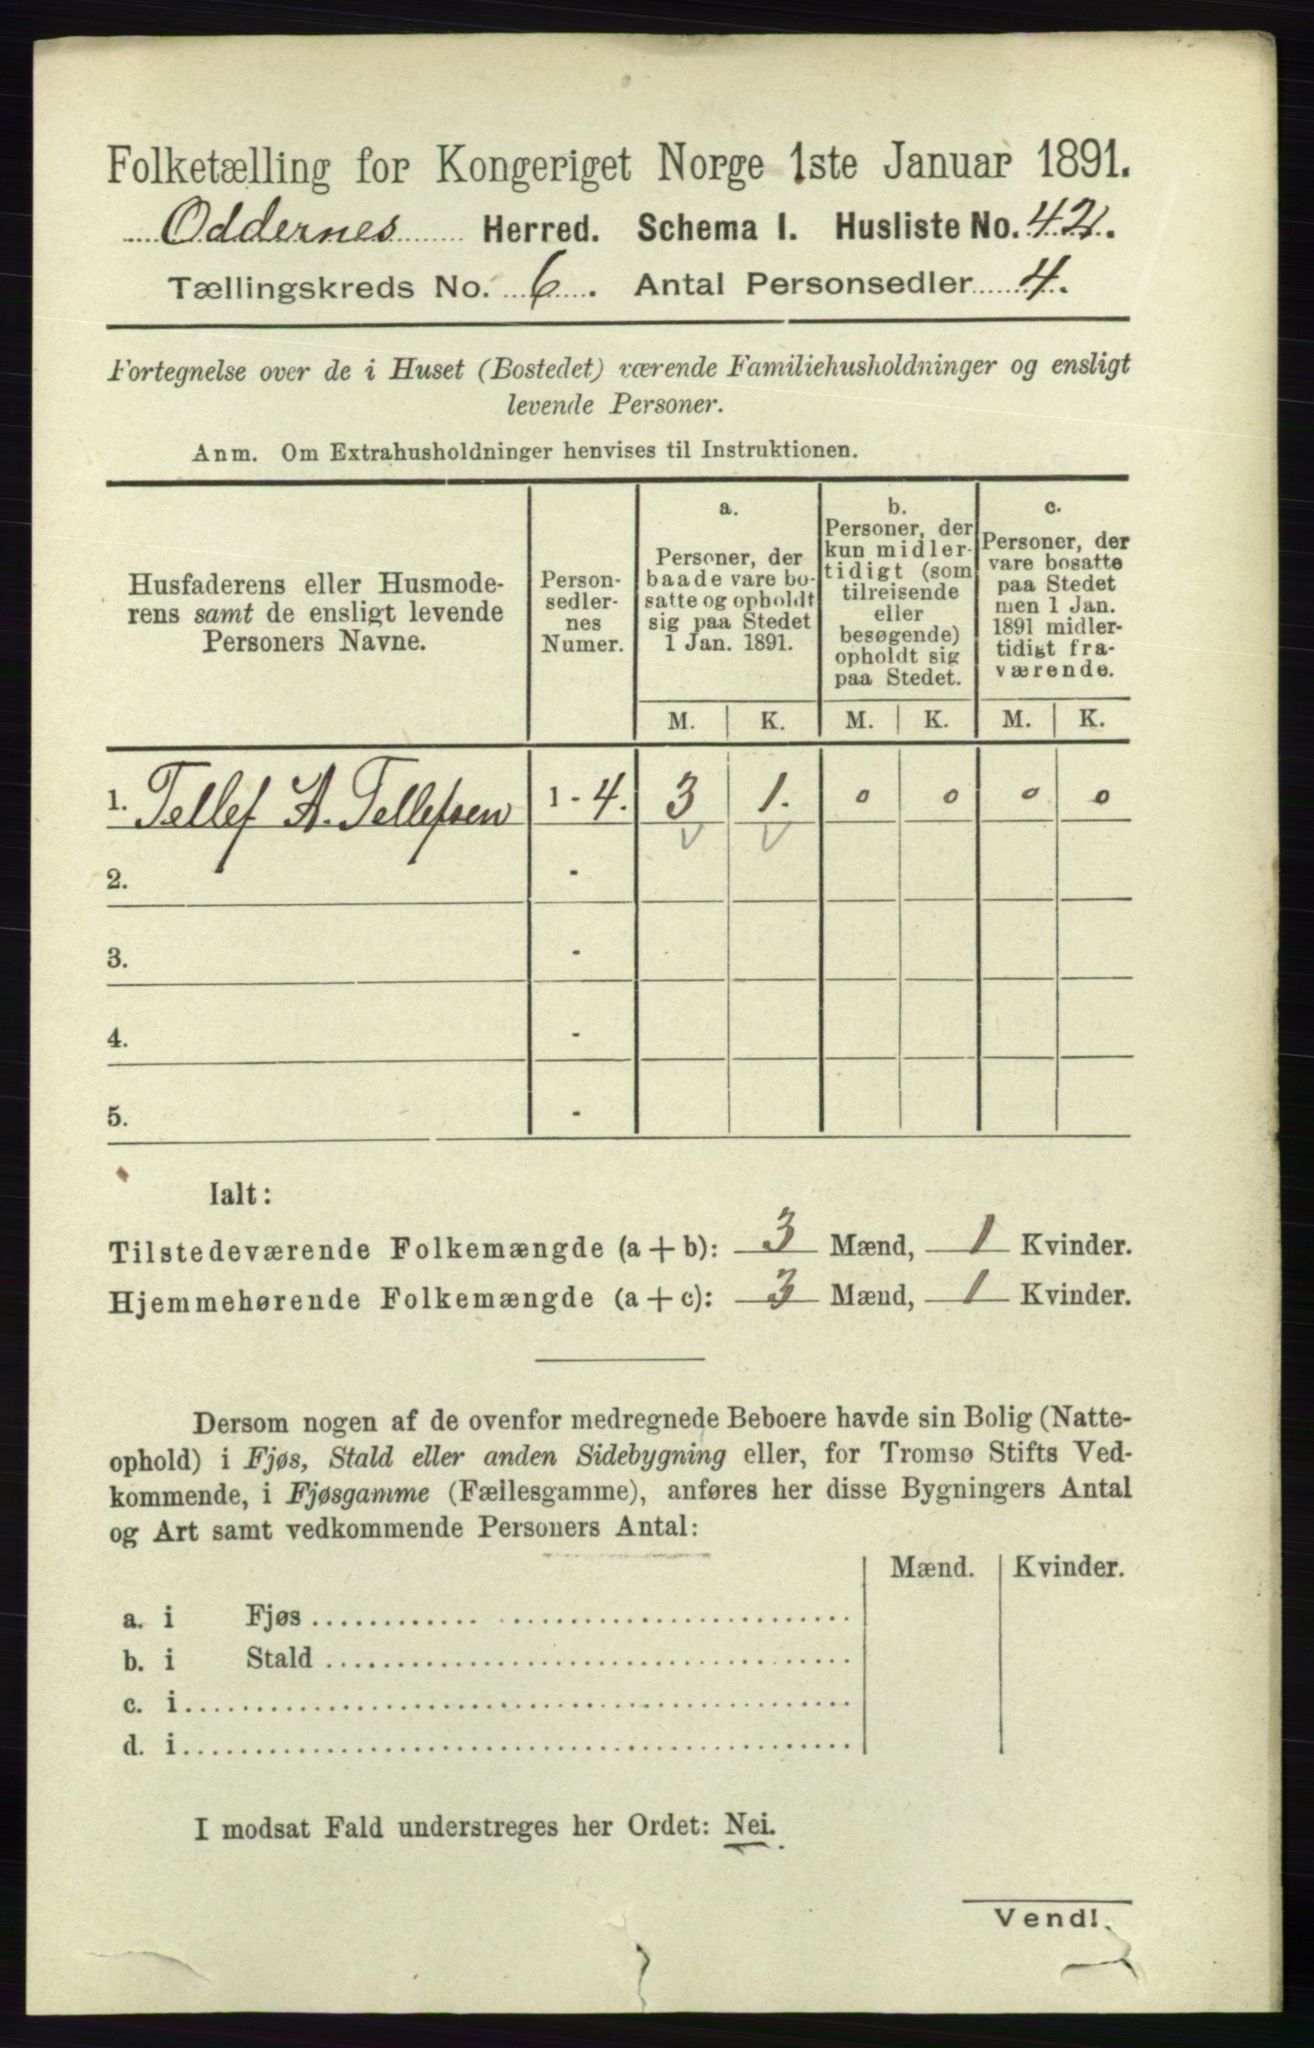 Folketælling for Kongeriget Norge 1ste Januar 1891.
Oddernes Herred. Schema I. Husliste No. 42.
Tællingskreds No. 6. Antal Personsedler 4.
Fortegnelse over de i Huset (Bostedet) værende Familiehusholdninger og ensligt
levende Personer.
Anm. Om Extrahusholdninger henvises til Instruktionen.
Husfaderens eller Husmode-
rens samt de ensligt levende
Personers Navne.
Person-
sedler-
nes
Numer.
a.
Personer, der
baade vare bo-
satte og opholdt
sig paa Stedet
1 Jan. 1891.
b.
Personer, der
kun midler-
tidigt (som
tilreisende
eller
besøgende)
opholdt sig
paa Stedet.
c.
Personer, der
vare bosatte
paa Stedet
men 1 Jan.
1891 midler-
tidigt fra-
værende.
M. K. M. K. M. K.
1. Tellef A. Tellefsen 1 - 4. 3 1. 0 0 0 0
2. -
3. -
4. -
5. -
Ialt:
Tilstedeværende Folkemængde (a + b): 3 Mænd, 1 Kvinder.
Hjemmehørende Folkemængde (a + c): 3 Mænd, 1 Kvinder.
Dersom nogen af de ovenfor medregnede Beboere havde sin Bolig (Natte-
ophold) i Fjøs, Stald eller anden Sidebygning eller, for Tromsø Stifts Ved-
kommende, i Fjøsgamme (Fællesgamme), anføres her disse Bygningers Antal
og Art samt vedkommende Personers Antal:
Mænd. Kvinder.
a. i Fjøs
b. i Stald
c. i
d. i
I modsat Fald understreges her Ordet: Nei.
Vend!